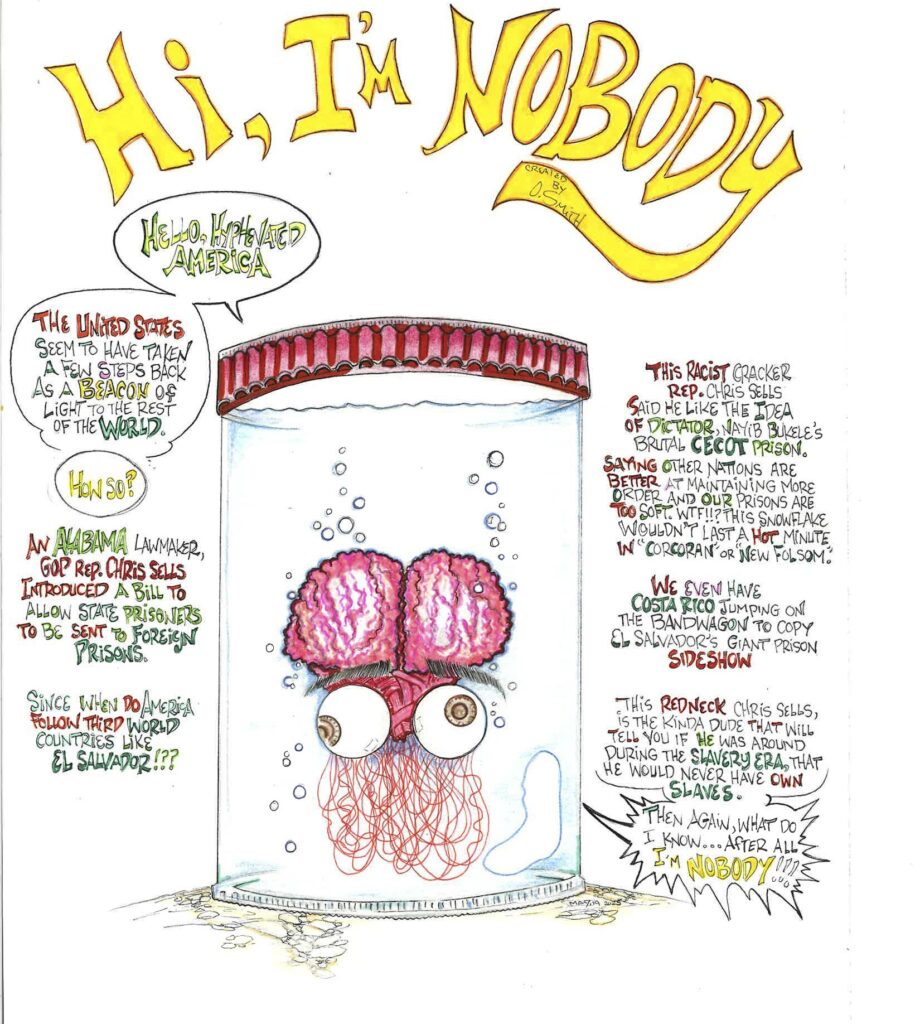 Hi, I'm NOBODY
CREATED
BY
O. SMITH
HELLO, HYPHENATED
AMERICA
THE UNITED STATES
SEEM TO HAVE TAKEN
A FEW STEPS BACK
AS A BEACON OF
LIGHT TO THE REST
OF THE WORLD.
HOW SO?
AN ALABAMA LAWMAKER,
GOP REP. CHRIS SELLS
INTRODUCED A BILL TO
ALLOW STATE PRISONERS
TO BE SENT TO FOREIGN
PRISONS.
SINCE WHEN DO AMERICA
FOLLOW THIRD WORLD
COUNTRIES LIKE
EL SALVADOR!??
THIS RACIST CRACKER
REP. CHRIS SELLS
SAID HE LIKE THE IDEA
OF DICTATOR, NAYIB BUKELE'S
BRUTAL CECOT PRISON.
SAYING OTHER NATIONS ARE
BETTER AT MAINTAINING MORE
ORDER AND OUR PRISONS ARE
TOO SOFT. WTF!!? THIS SNOWFLAKE
WOULDN'T LAST A HOT MINUTE
IN "CORCORAN" OR "NEW FOLSOM."
WE EVEN HAVE
COSTA RICO JUMPING ON
THE BANDWAGON TO COPY
EL SALVADOR'S GIANT PRISON
SIDESHOW
THIS REDNECK CHRIS SELLS,
IS THE KINDA DUDE THAT WILL
TELL YOU IF HE WAS AROUND
DURING THE SLAVERY ERA, THAT
HE WOULD NEVER HAVE OWN
SLAVES.
THEN AGAIN, WHAT DO
I KNOW... AFTER ALL
I'M NOBODY!!!...
2025